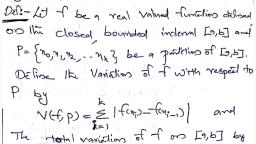 Defi:- Let f be a real valued function defined
on the closed, bounded interval [a,b] and
P = {x₀, x₁, x₂, ... xₖ} be a partition of [a,b].
Define the Variation of f with respect to
P by
V(f,P) = Σ_{i=1}^{k} |f(xᵢ) - f(xᵢ₋₁)| and
The total variation of f on [a,b] by